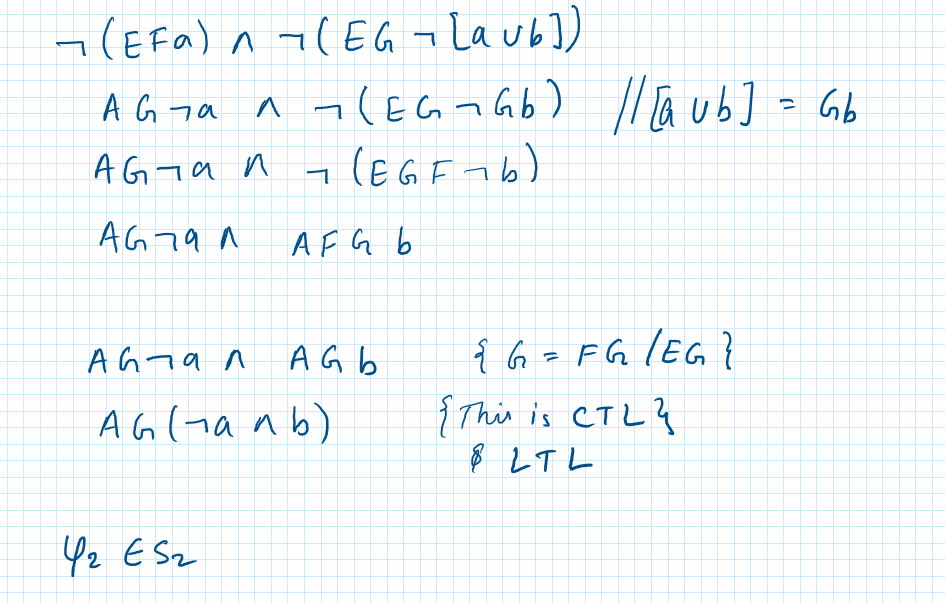 ¬(EFa) ∧ ¬(EG ¬[a ∪ b])
AG¬a ∧ ¬(EG¬Gb) //[a ∪ b] = Gb
AG¬a ∧ ¬(EGF¬b)
AG¬a ∧ AFGb
AG¬a ∧ AGb {G = FG/EG}
AG(¬a ∧ b) {This is CTL}
& LTL
φ₂ ∈ S₂